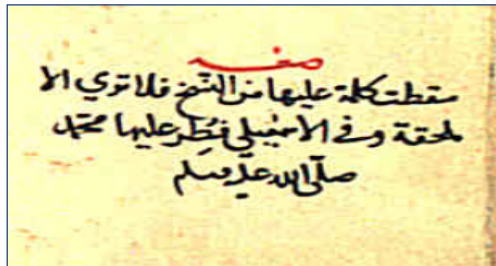 صفه
سقطت كلمة عليها من النسخ فلا توي الا
ملحقة وفي فنظر عليها محمد
صلى الله عليه وسلم